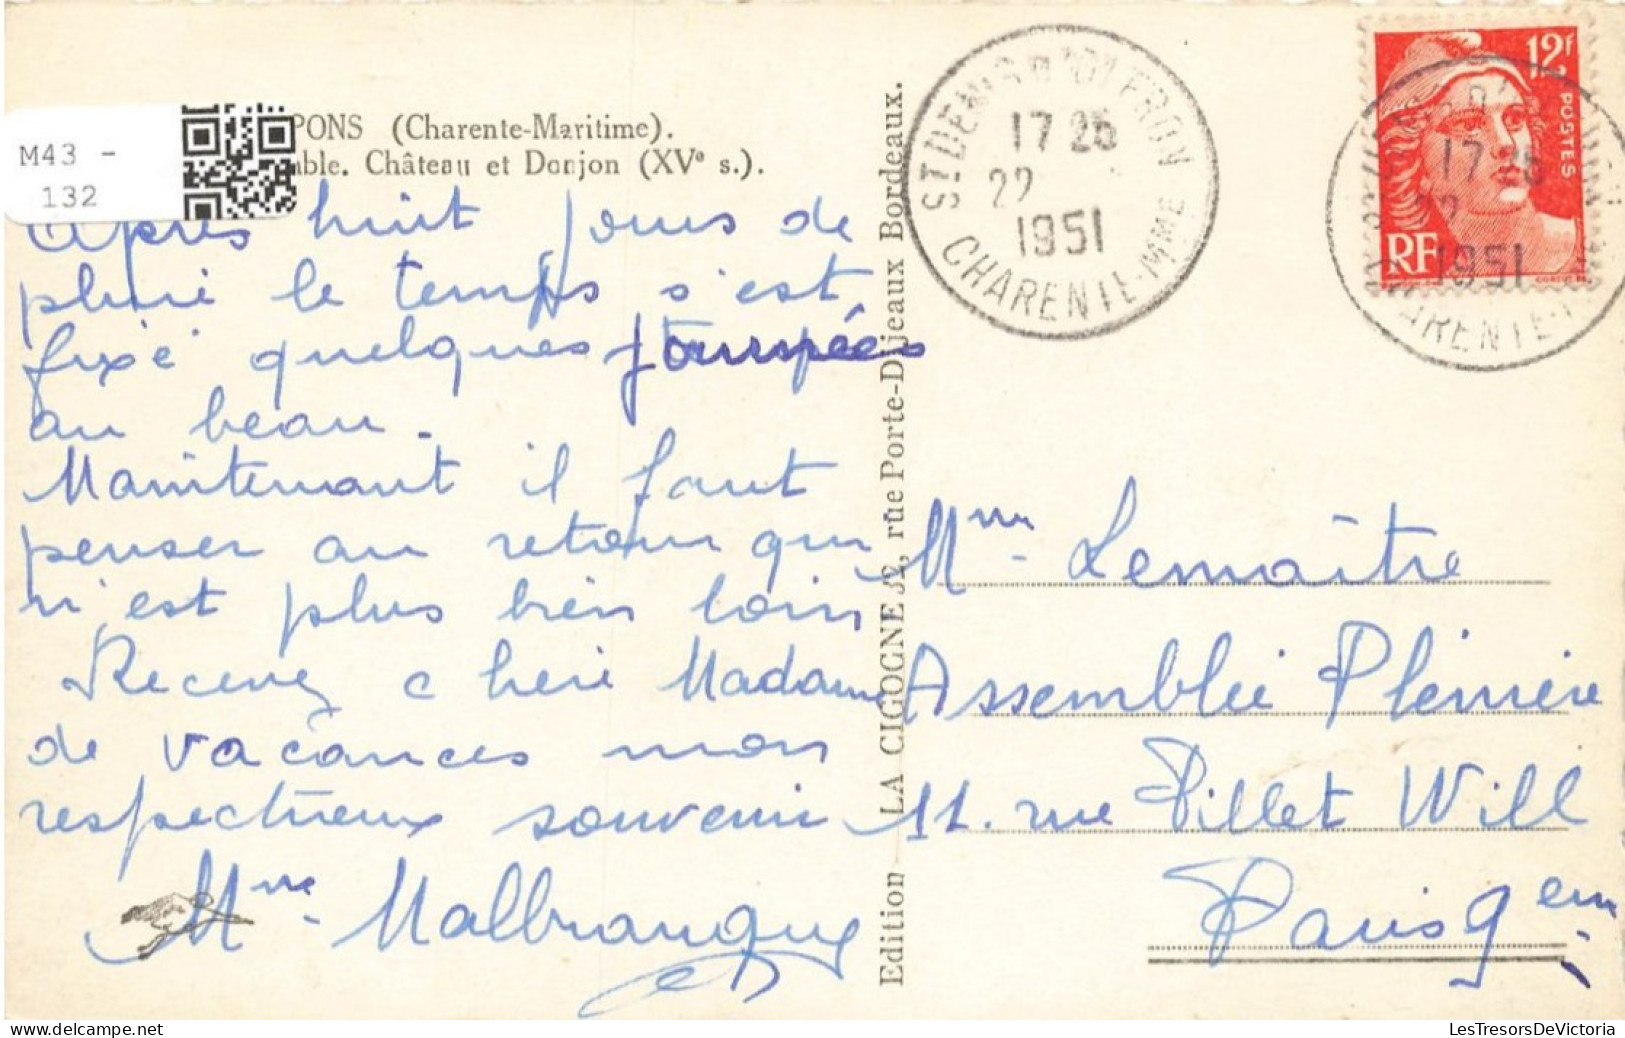 M43 -
132
PONS (Charente-Maritime).
ble. Château et Donjon (XVe s.).
Après huit jours de
pluie le temps s'est
fixé quelques
au beau.
Maintenant il faut
penser au retour qui
n'est plus bien loin
Recevez chère Madame
de vacances mon
respectueux souvenir
Mme Malbranque
Edition LA CIGOGNE 32, rue Porte-Dijeaux Bordeaux.
ST DENIS D'OLERON
17 25
22
1951
CHARENTE-MME
12F
POSTES
RF
17 25
22
1951
CHARENTE-
Mme Lemaître
Assemblée Plénière
11. rue Pillet Will
Paris 9em
LesTresorsDeVictoria.com